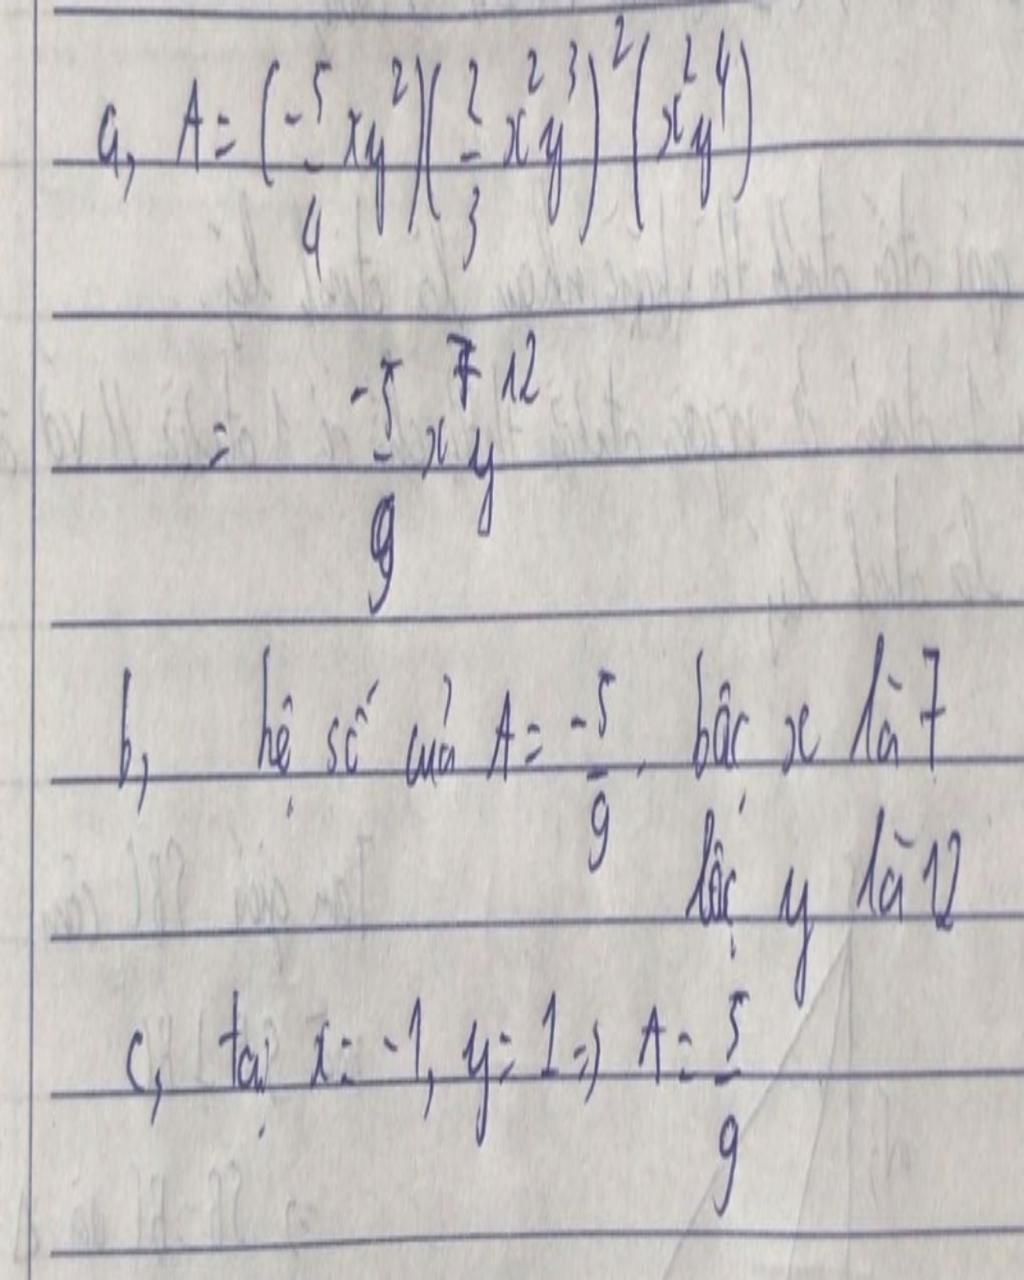 a, A = (-5/4 xy²)(2/3 x²y³)²(x²y⁴)
= -5/9 x⁷y¹²
b, hệ số của A = -5/9. bậc x là 7
bậc y là 12
c, tại x = -1, y = 1 => A = 5/9